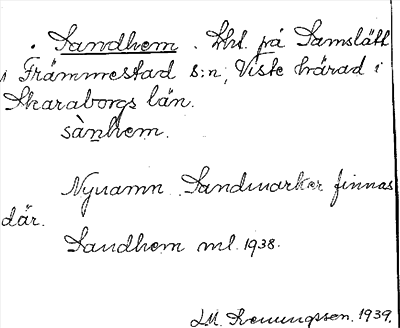 . Sandhem. Lht. på Samslätt
i Främmestad s:n, Viste härad i
Skaraborgs län.
sànhem.
Nynamn. Sandmarker finnas
där.
Sandhem ml. 1938.
1939.